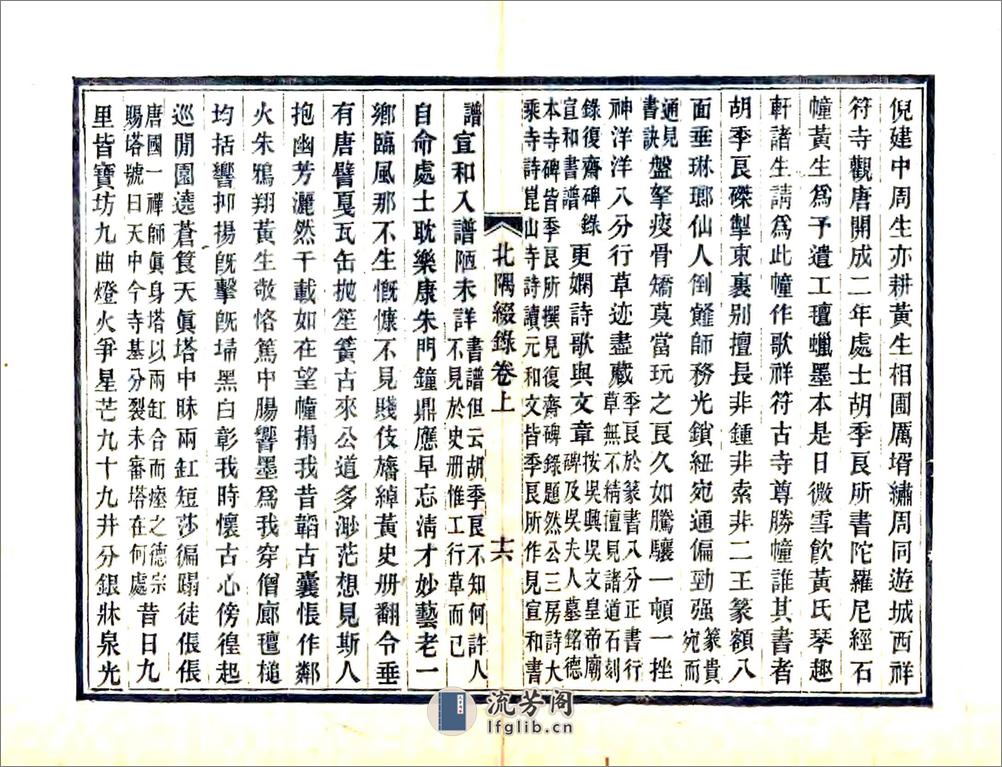 倪建中周生亦耕黃生相圃厲壻繡周同遊城西祥
符寺觀唐開成二年處士胡季良所書陀羅尼經石
幢黃生爲予遣工氊蠟墨本是日微雪飲黃氏琴趣
軒諸生請爲此幢作歌祥符古寺尊勝幢誰其書者
胡季良磔掣東裏别擅長非鍾非索非二王篆額八
面垂琳瑯仙人倒薤師務光鎖紐宛通偏勁强篆貴宛而
通見書訣盤拏瘦骨矯莫當玩之良久如騰驤一頓一挫
神洋洋八分行草迹盡藏季良於篆書八分正書行草無不精擅見諸道石刻
錄復齋碑錄宣和書譜更嫻詩歌與文章按吳興吳文皇帝廟碑及吳夫人墓銘德
本寺碑皆季良所撰見復齋碑錄題然公三房詩大
乘寺詩崑山寺詩讀元和文皆季良所作見宣和書
北隅綴錄卷上
十六
譜宣和入譜陋未詳書譜但云胡季良不知何許人不見於史册惟工行草而已
自命處士耽樂康朱門鐘鼎應早忘淸才妙藝老一
鄉臨風那不生慨慷不見賤伎旛綽黃史册翻令垂
有唐譬戛瓦缶抛笙簧古來公道多渺茫想見斯人
抱幽芳灑然千載如在望幢搨我昔韜古囊悵作鄰
火朱鴉翔黃生敬恪篤中腸響墨爲我穿僧廊氊槌
均拮響抑揚旣擊旣埽黑白彰我時懷古心傍徨起
巡閒園遶蒼筤天眞塔中昧兩缸短莎徧蹋徒倀倀
唐國一禪師眞身塔以兩缸合而瘞之德宗賜塔號曰天中今寺基分裂未審塔在何處昔日九
里皆寶坊九曲燈火爭星芒九十九井分銀牀泉光
流芳阁
lfglib.cn